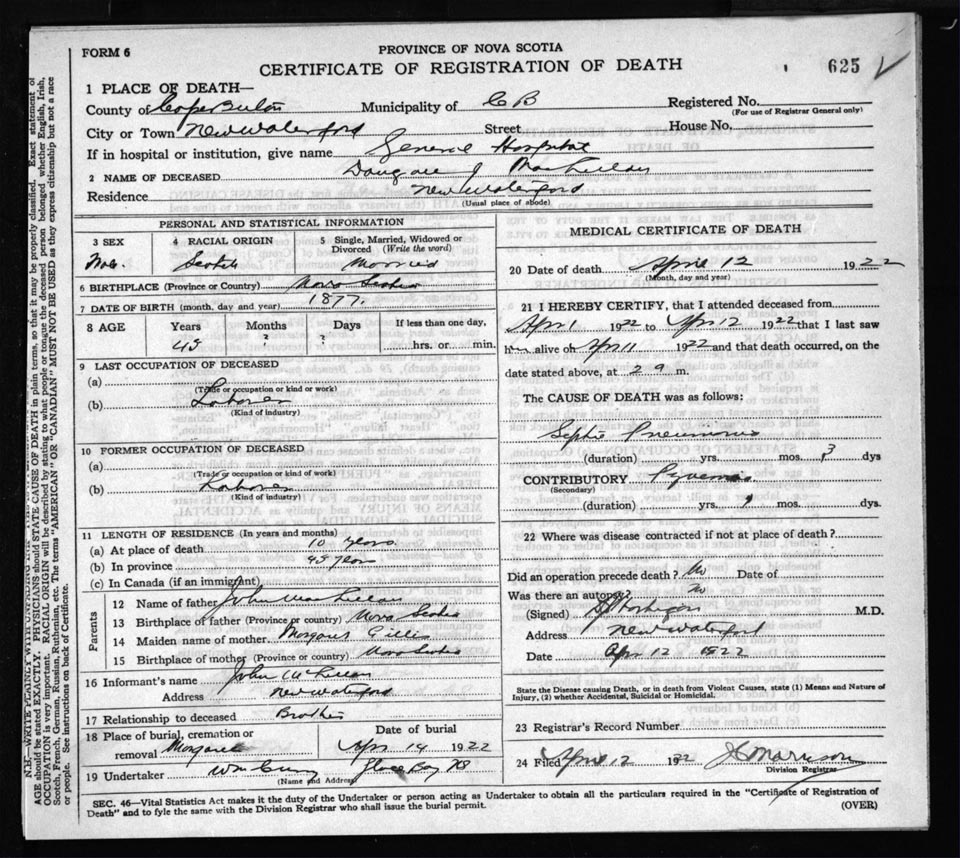 FORM 6
PROVINCE OF NOVA SCOTIA
CERTIFICATE OF REGISTRATION OF DEATH
625
1 PLACE OF DEATH—
County of Cape Breton Municipality of C B Registered No.
(For use of Registrar General only)
City or Town New Waterford Street House No,
If in hospital or institution, give name General Hospital
2 NAME OF DECEASED Dougall J MacLellan
Residence New Waterford
(Usual place of abode)
PERSONAL AND STATISTICAL INFORMATION
3 SEX 4 RACIAL ORIGIN 5 Single, Married, Widowed or Divorced (Write the word)
Male Scotch Married
6 BIRTHPLACE (Province or Country) Nova Scotia
7 DATE OF BIRTH (month, day and year) 1877.
8 AGE Years Months Days If less than one day,
45 ? ? hrs. or min.
9 LAST OCCUPATION OF DECEASED
(a)
(Trade or occupation or kind of work)
(b) Laborer
(Kind of industry)
10 FORMER OCCUPATION OF DECEASED
(a)
(Trade or occupation or kind of work)
(b) Laborer
(Kind of industry)
11 LENGTH OF RESIDENCE (In years and months)
(a) At place of death 10 years
(b) In province 45 years
(c) In Canada (if an immigrant)
Parents
12 Name of father John MacLellan
13 Birthplace of father (Province or country) Nova Scotia
14 Maiden name of mother Margaret Gillis
15 Birthplace of mother (Province or country) Nova Scotia
16 Informant's name John McLellan
Address New Waterford
17 Relationship to deceased Brother
18 Place of burial, cremation or removal Margaree
Date of burial Apr 14 1922
19 Undertaker Glace Bay
(Name and Address)
MEDICAL CERTIFICATE OF DEATH
20 Date of death April 12 1922
(Month, day and year)
21 I HEREBY CERTIFY, that I attended deceased from
Apr 1 1922 to Apr 12 1922 that I last saw
him alive on Apr 11 1922 and that death occurred, on the
date stated above, at 2 a m.
The CAUSE OF DEATH was as follows:
Septic Pneumonia
(duration) yrs. mos. 3 dys
CONTRIBUTORY Pyaemia
(Secondary)
(duration) yrs. mos. dys.
22 Where was disease contracted if not at place of death?
Did an operation precede death? No Date of
Was there an autopsy? No
(Signed) M.D.
Address New Waterford
Date Apr 12 1922
State the Disease causing Death, or in death from Violent Causes, state (1) Means and Nature of Injury, (2) whether Accidental, Suicidal or Homicidal.
23 Registrar's Record Number
24 Filed April 12 1922
Division Registrar
SEC. 46—Vital Statistics Act makes it the duty of the Undertaker or person acting as Undertaker to obtain all the particulars required in the "Certificate of Registration of
Death" and to fyle the same with the Division Registrar who shall issue the burial permit.
(OVER)
AGE should be stated EXACTLY. PHYSICIANS should STATE CAUSE OF DEATH in plain terms, so that it may be properly classified. Exact statement of
OCCUPATION is very important. RACIAL ORIGIN will be described by stating to what people or tongue the deceased person belonged whether English, Irish,
Scotch, French, German, Russian, Ruthenian, etc. The terms "AMERICAN" OR "CANADIAN" MUST NOT BE USED as they express citizenship but not a race
or people. See instructions on back of Certificate.